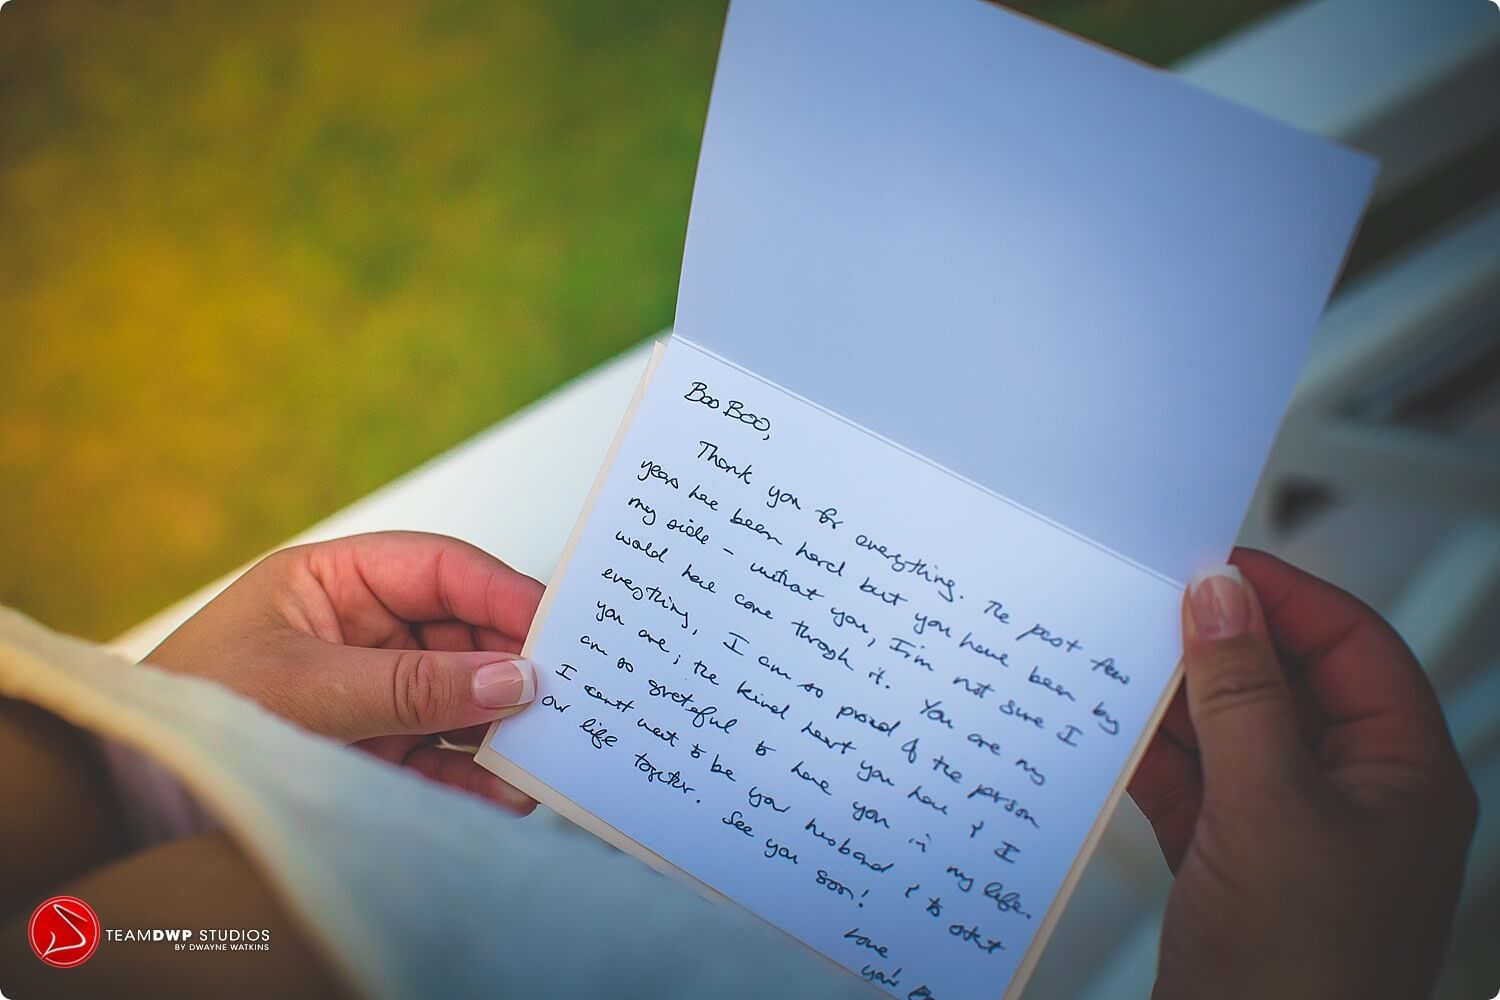 Boo Boo,
Thank you for everything. The past few
years have been hard but you have been by
my side - without you, I'm not sure I
would have come through it. You are my
everything, I am so proud of the person
you are; the kind heart you have & I
am so grateful to have you in my life.
I can't wait to be your husband & to start
our life together. See you soon!
Love
your
TEAMDWP STUDIOS
BY DWAYNE WATKINS